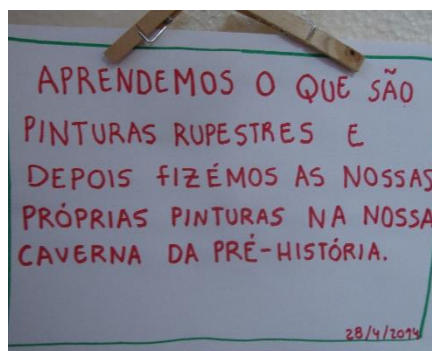 APRENDEMOS O QUE SÃO
PINTURAS RUPESTRES E
DEPOIS FIZÉMOS AS NOSSAS
PRÓPRIAS PINTURAS NA NOSSA
CAVERNA DA PRÉ-HISTÓRIA.
28/4/2014